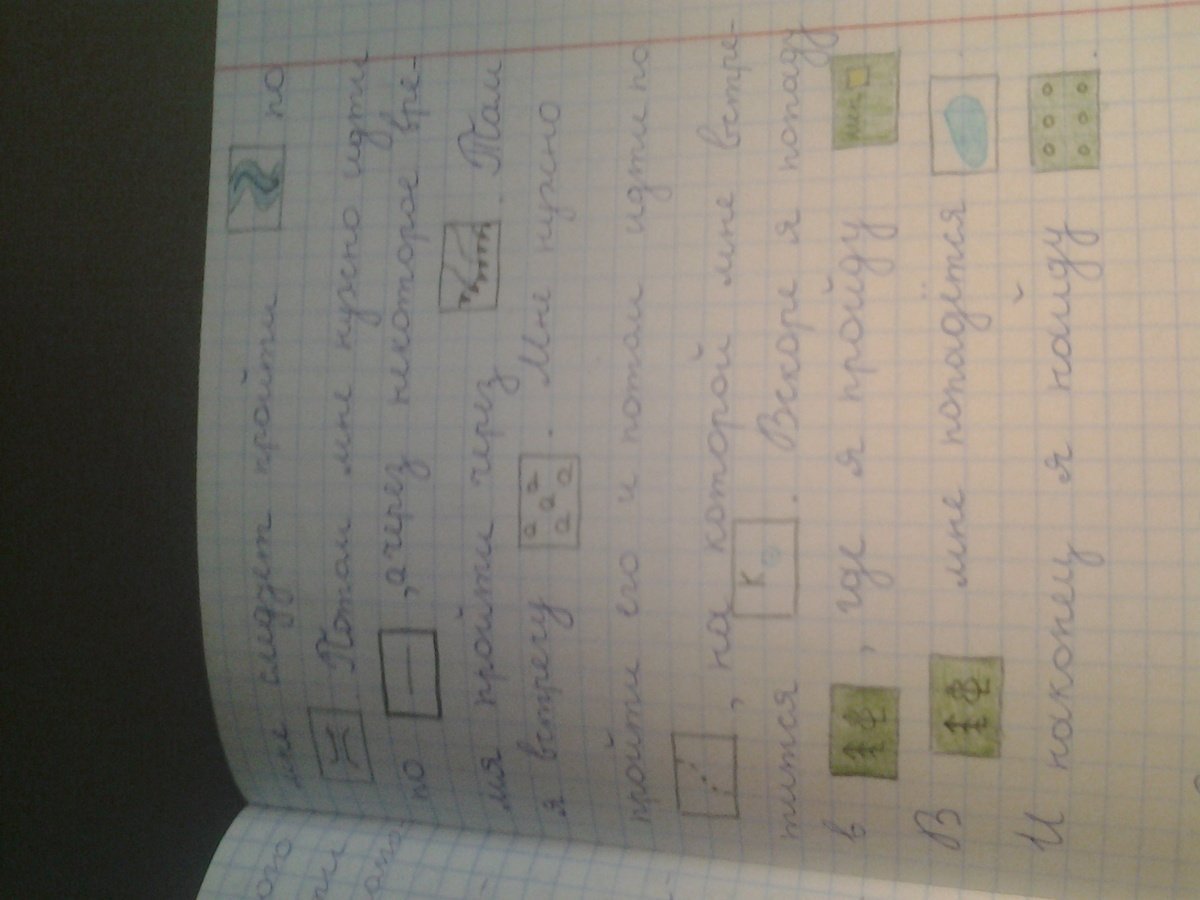 мне следует пройти по
. Потом мне нужно идти
по , а через некоторое вре-
мя пройти через . Там
я встречу . Мне нужно
пройти его и потом идти по
, на которой мне встре-
тится К . Вскоре я попаду
в , где я пройду
В мне попадётся .
И наконец я найду .